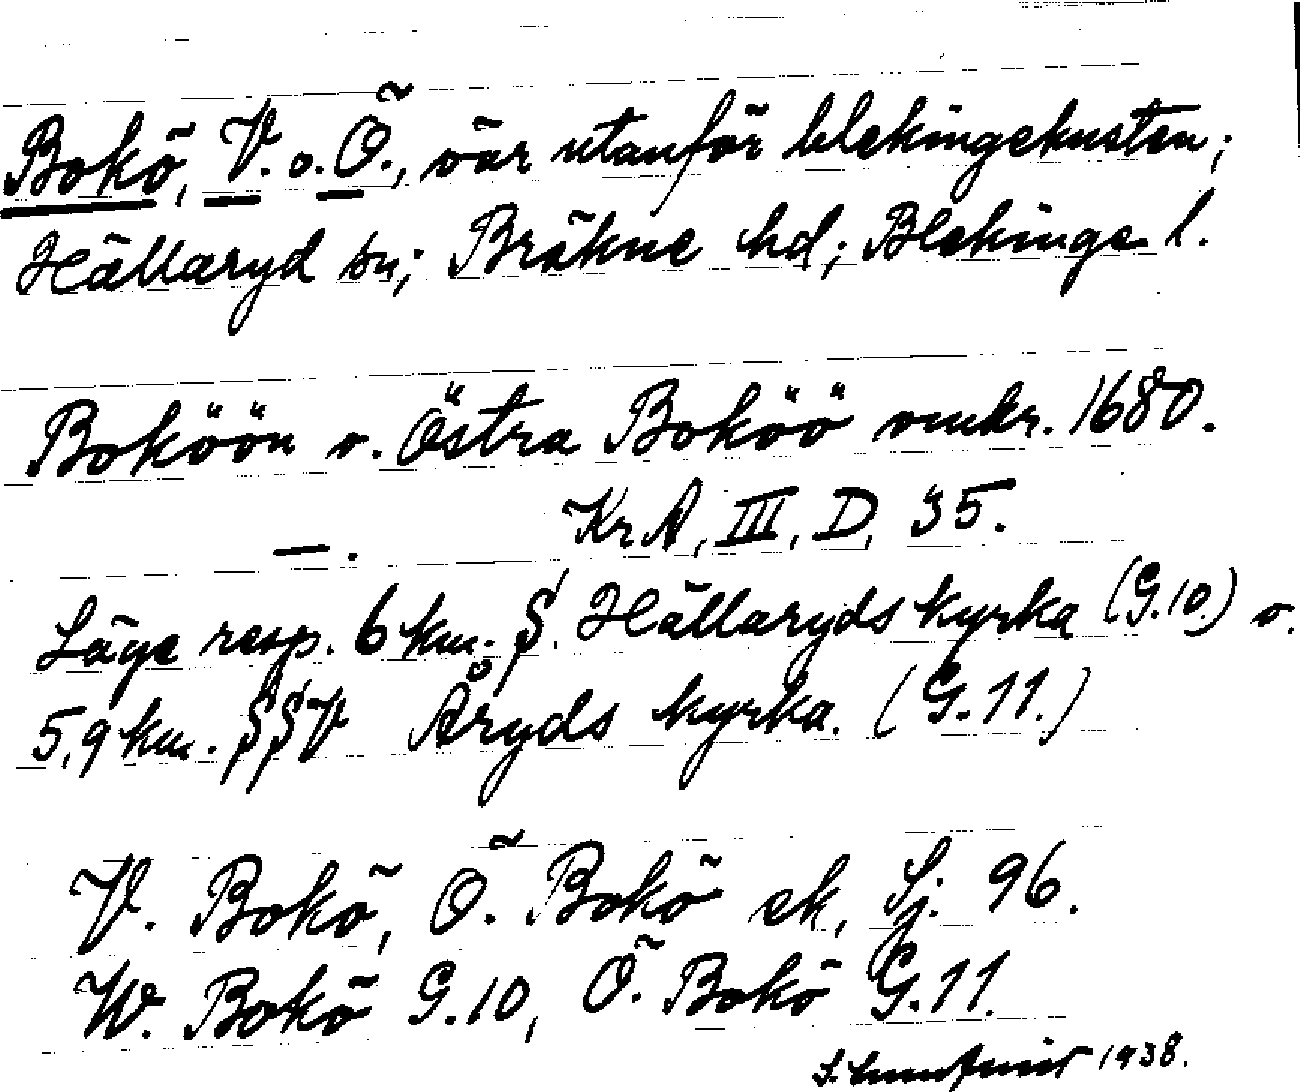 Bokö, V. o. Ö., öar utanför blekingekusten;
Hällaryd sn; Bräkne hd; Blekinge l.
Boköön o. Östra Boköö omkr. 1680.
—. KrA, III, D, 35.
Läge resp. 6 km. S. Hällaryds kyrka (G.10.) o.
5,9 km. SSV Åryds kyrka. (G.11.)
V. Bokö, Ö. Bokö ek, Sj. 96.
W. Bokö G.10, Ö. Bokö G.11.
1938.